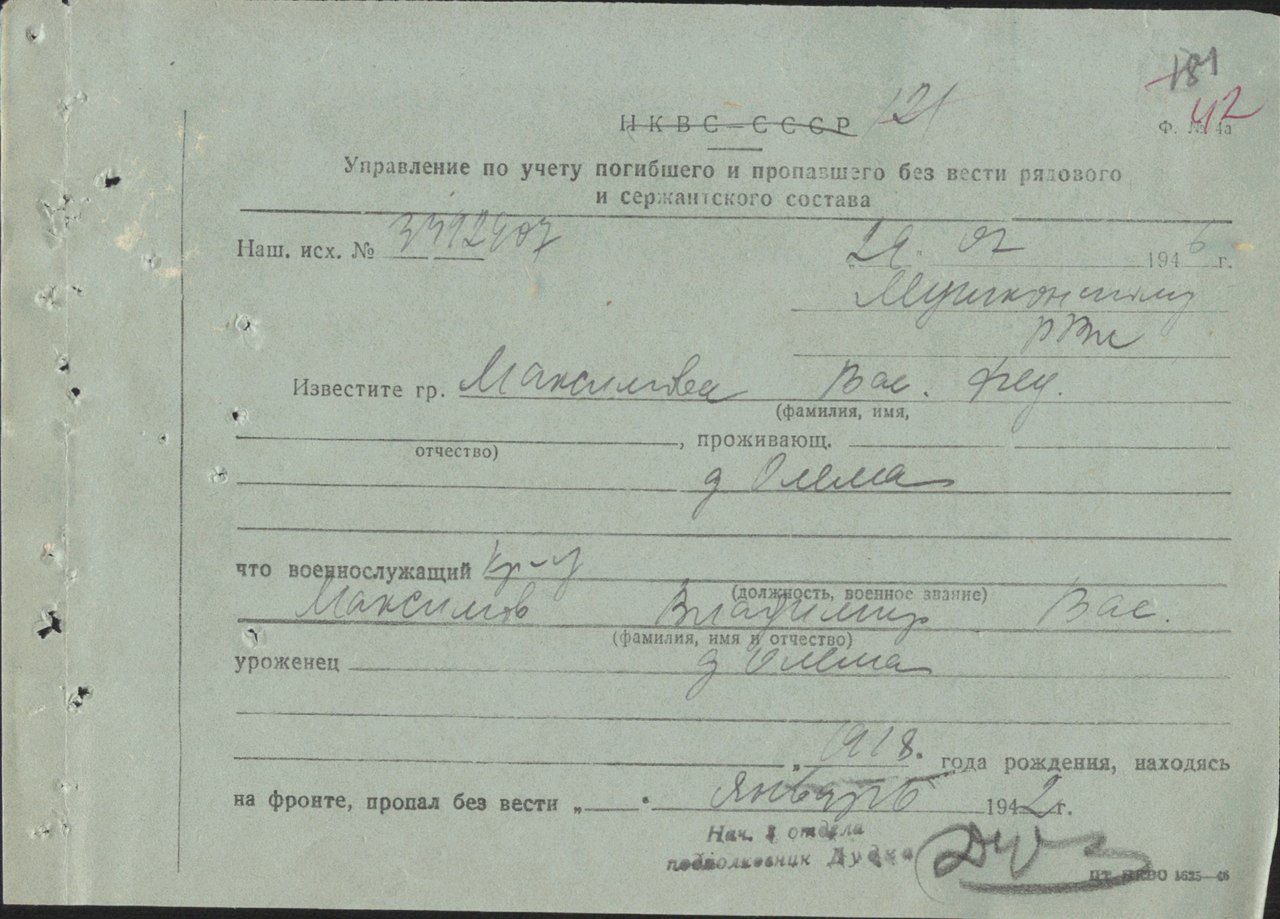 181
42
НКВС—СССР 121
Ф. № 4а
Управление по учету погибшего и пропавшего без вести рядового
и сержантского состава
Наш. исх. №
194 6 г.
РВК
Известите гр. Максимова Вас. Фед.
(фамилия, имя,
отчество) , проживающ.
д Олема
что военнослужащий кр-ц
(должность, военное звание)
Максимов Владимир Вас.
(фамилия, имя и отчество)
уроженец д Олема
„ 1918. года рождения, находясь
на фронте, пропал без вести „ " январь 1942 г.
Нач. 1 отдела
подполковник Дудко
ЦТ НКВО 1625—46